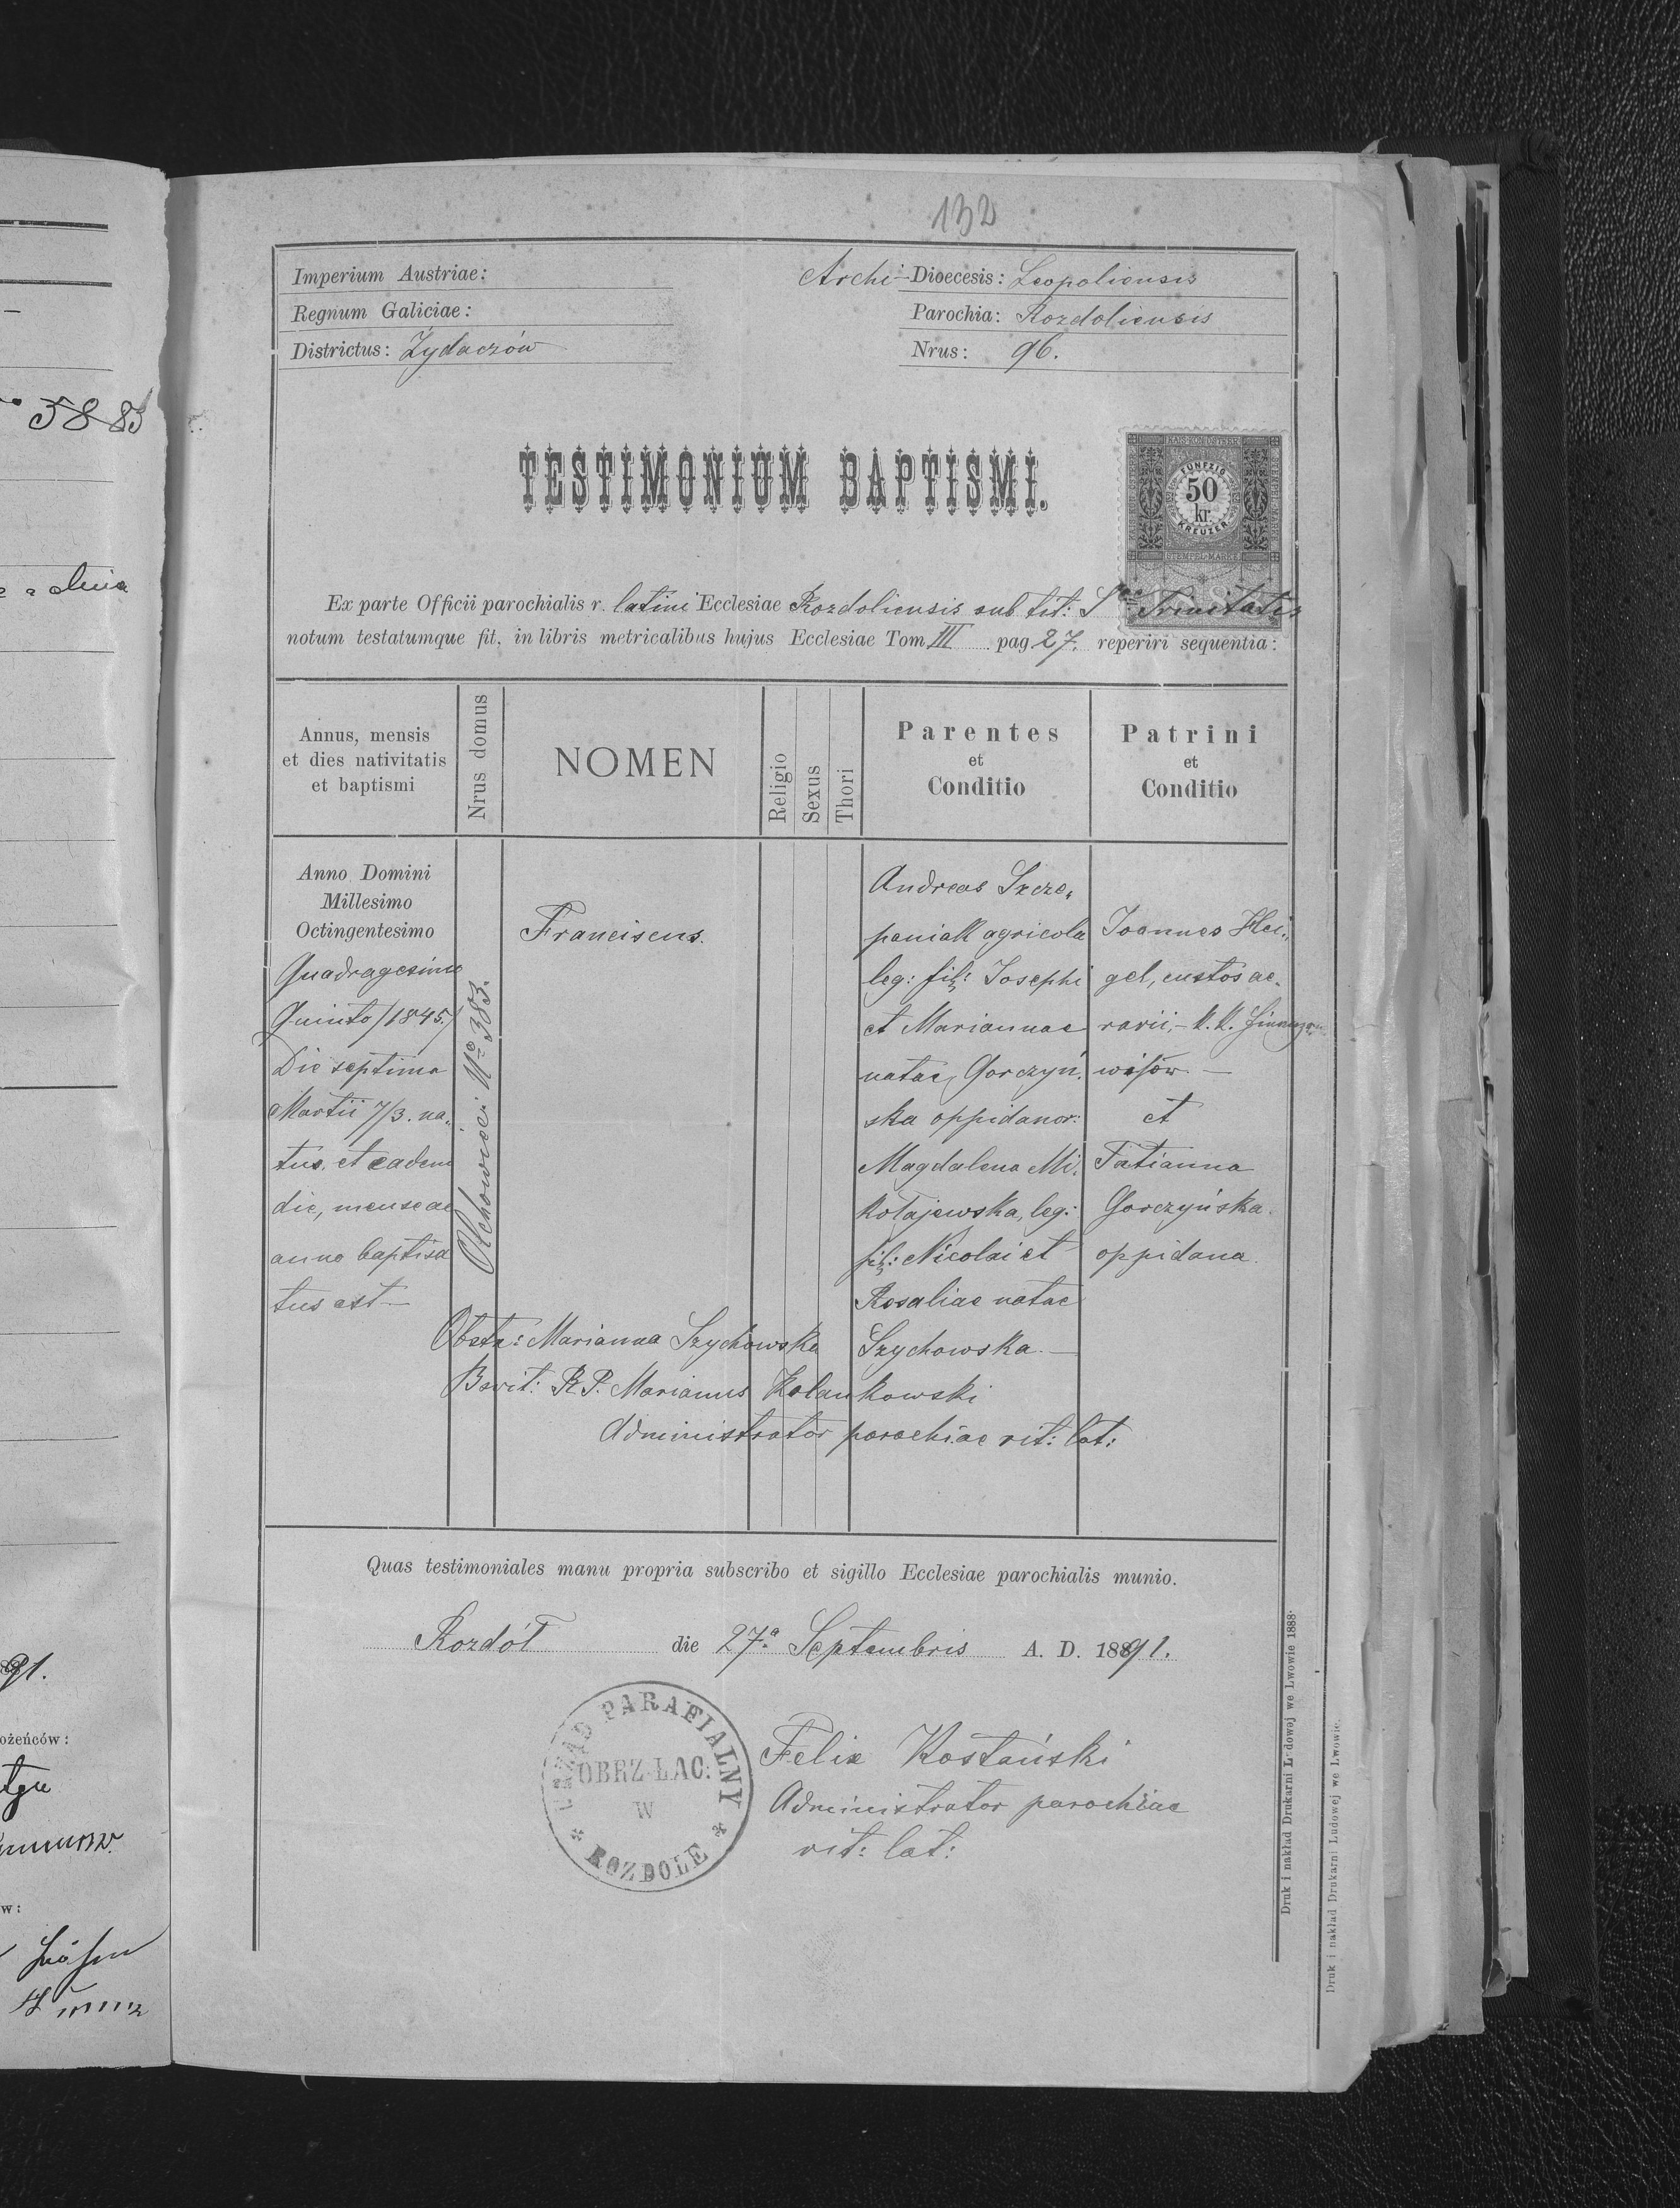 132
Imperium Austriae:
Archi-Dioecesis: Leopoliensis
Regnum Galiciae:
Parochia: Rozdoliensis
Districtus: Żydaczów
Nrus: 96.
TESTIMONIUM BAPTISMI.
KAIS. KÖN. ÖSTERR.
FÜNFZIG
50
kr.
KREUZER
STEMPEL-MARKE
Ex parte Officii parochialis r. latini Ecclesiae Rozdoliensis sub tit: Sae Trinitatis
notum testatumque fit, in libris metricalibus hujus Ecclesiae Tom III pag 27. reperiri sequentia:
Annus, mensis
et dies nativitatis
et baptismi
Nrus domus
NOMEN
Religio
Sexus
Thori
Parentes
et
Conditio
Patrini
et
Conditio
Anno Domini
Millesimo
Octingentesimo
Quadragesimo
Quinto /1845./
Die septima
Martii 7/3. na„
tus, et eadem
die, mense ac
anno baptisa
tus est —
Nº 383.
Franciscus.
Andreas Szcze„
paniak agricola
leg: fil: Josephi
et Mariannae
natae Gorczyń„
ska oppidanor:
Magdalena Mi„
kołajewska, leg:
fil: Nicolai et
Rosaliae natae
Szychowska. —
Joannes Flei„
gel, custos ae„
rarii, – k. k.
et
Tatianna
Gorczyńska
oppidana.
Obstx: Marianna Szychowska
Bavit: R. P. Marianus Kolankowski
Administrator parochiae rit: lat:
Quas testimoniales manu propria subscribo et sigillo Ecclesiae parochialis munio.
Rozdół die 27ª Septembris A. D. 1891.
URZĄD PARAFIALNY
OBRZ. ŁAC:
W
ROZDOLE
Felix Kostański
Administrator parochiae
rit: lat:
Druk i nakład Drukarni Ludowej we Lwowie 1888.
Druk i nakład Drukarni Ludowej we Lwowie.
5883
91.
ożeńców:
w: